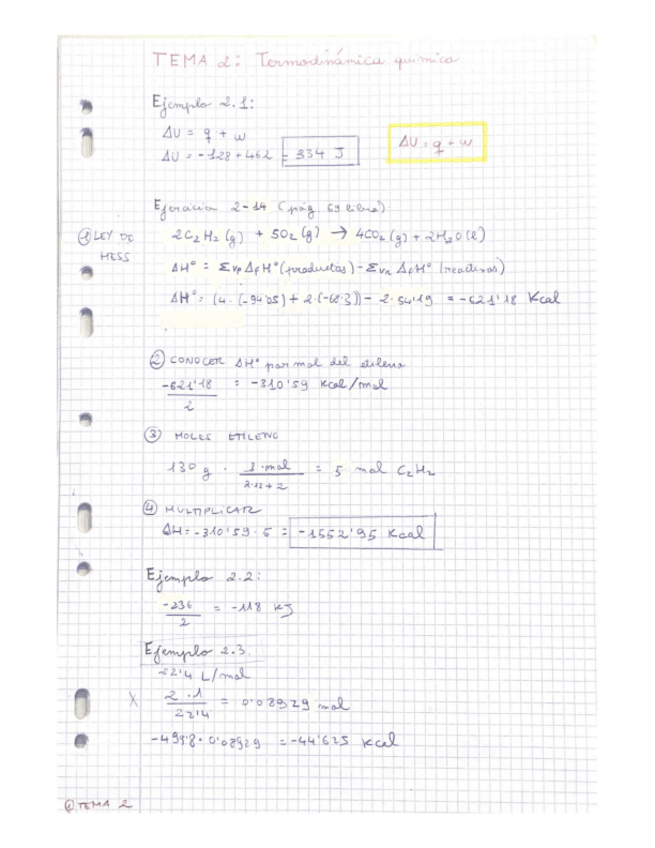 TEMA 2: Termodinámica química
Ejemplo 2.1:
ΔU = q + w
ΔU = -128 + 462 = 334 J
ΔU = q + w
Ejercicio 2-14 (pág 69 libro)
① LEY DE HESS
2C₂H₂(g) + 5O₂(g) → 4CO₂(g) + 2H₂O(l)
ΔH° = Σνₚ ΔfH°(productos) - Σνᵣ ΔfH°(reactivos)
ΔH° = (4·(-94'05) + 2·(-68'3)) - 2·54'19 = -621'18 Kcal
② CONOCER ΔH° por mol del etileno
-621'18 / 2 = -310'59 Kcal/mol
③ MOLES ETILENO
130 g · 1 mol / 2·12+2 = 5 mol C₂H₂
④ MULTIPLICAR
ΔH = -310'59 · 5 = -1552'95 Kcal
Ejemplo 2.2:
-236 / 2 = -118 KJ
Ejemplo 2.3.
22'4 L/mol
X 2·1 / 22'4 = 0'08929 mol
-499'8 · 0'08929 = -44'625 Kcal
① TEMA 2